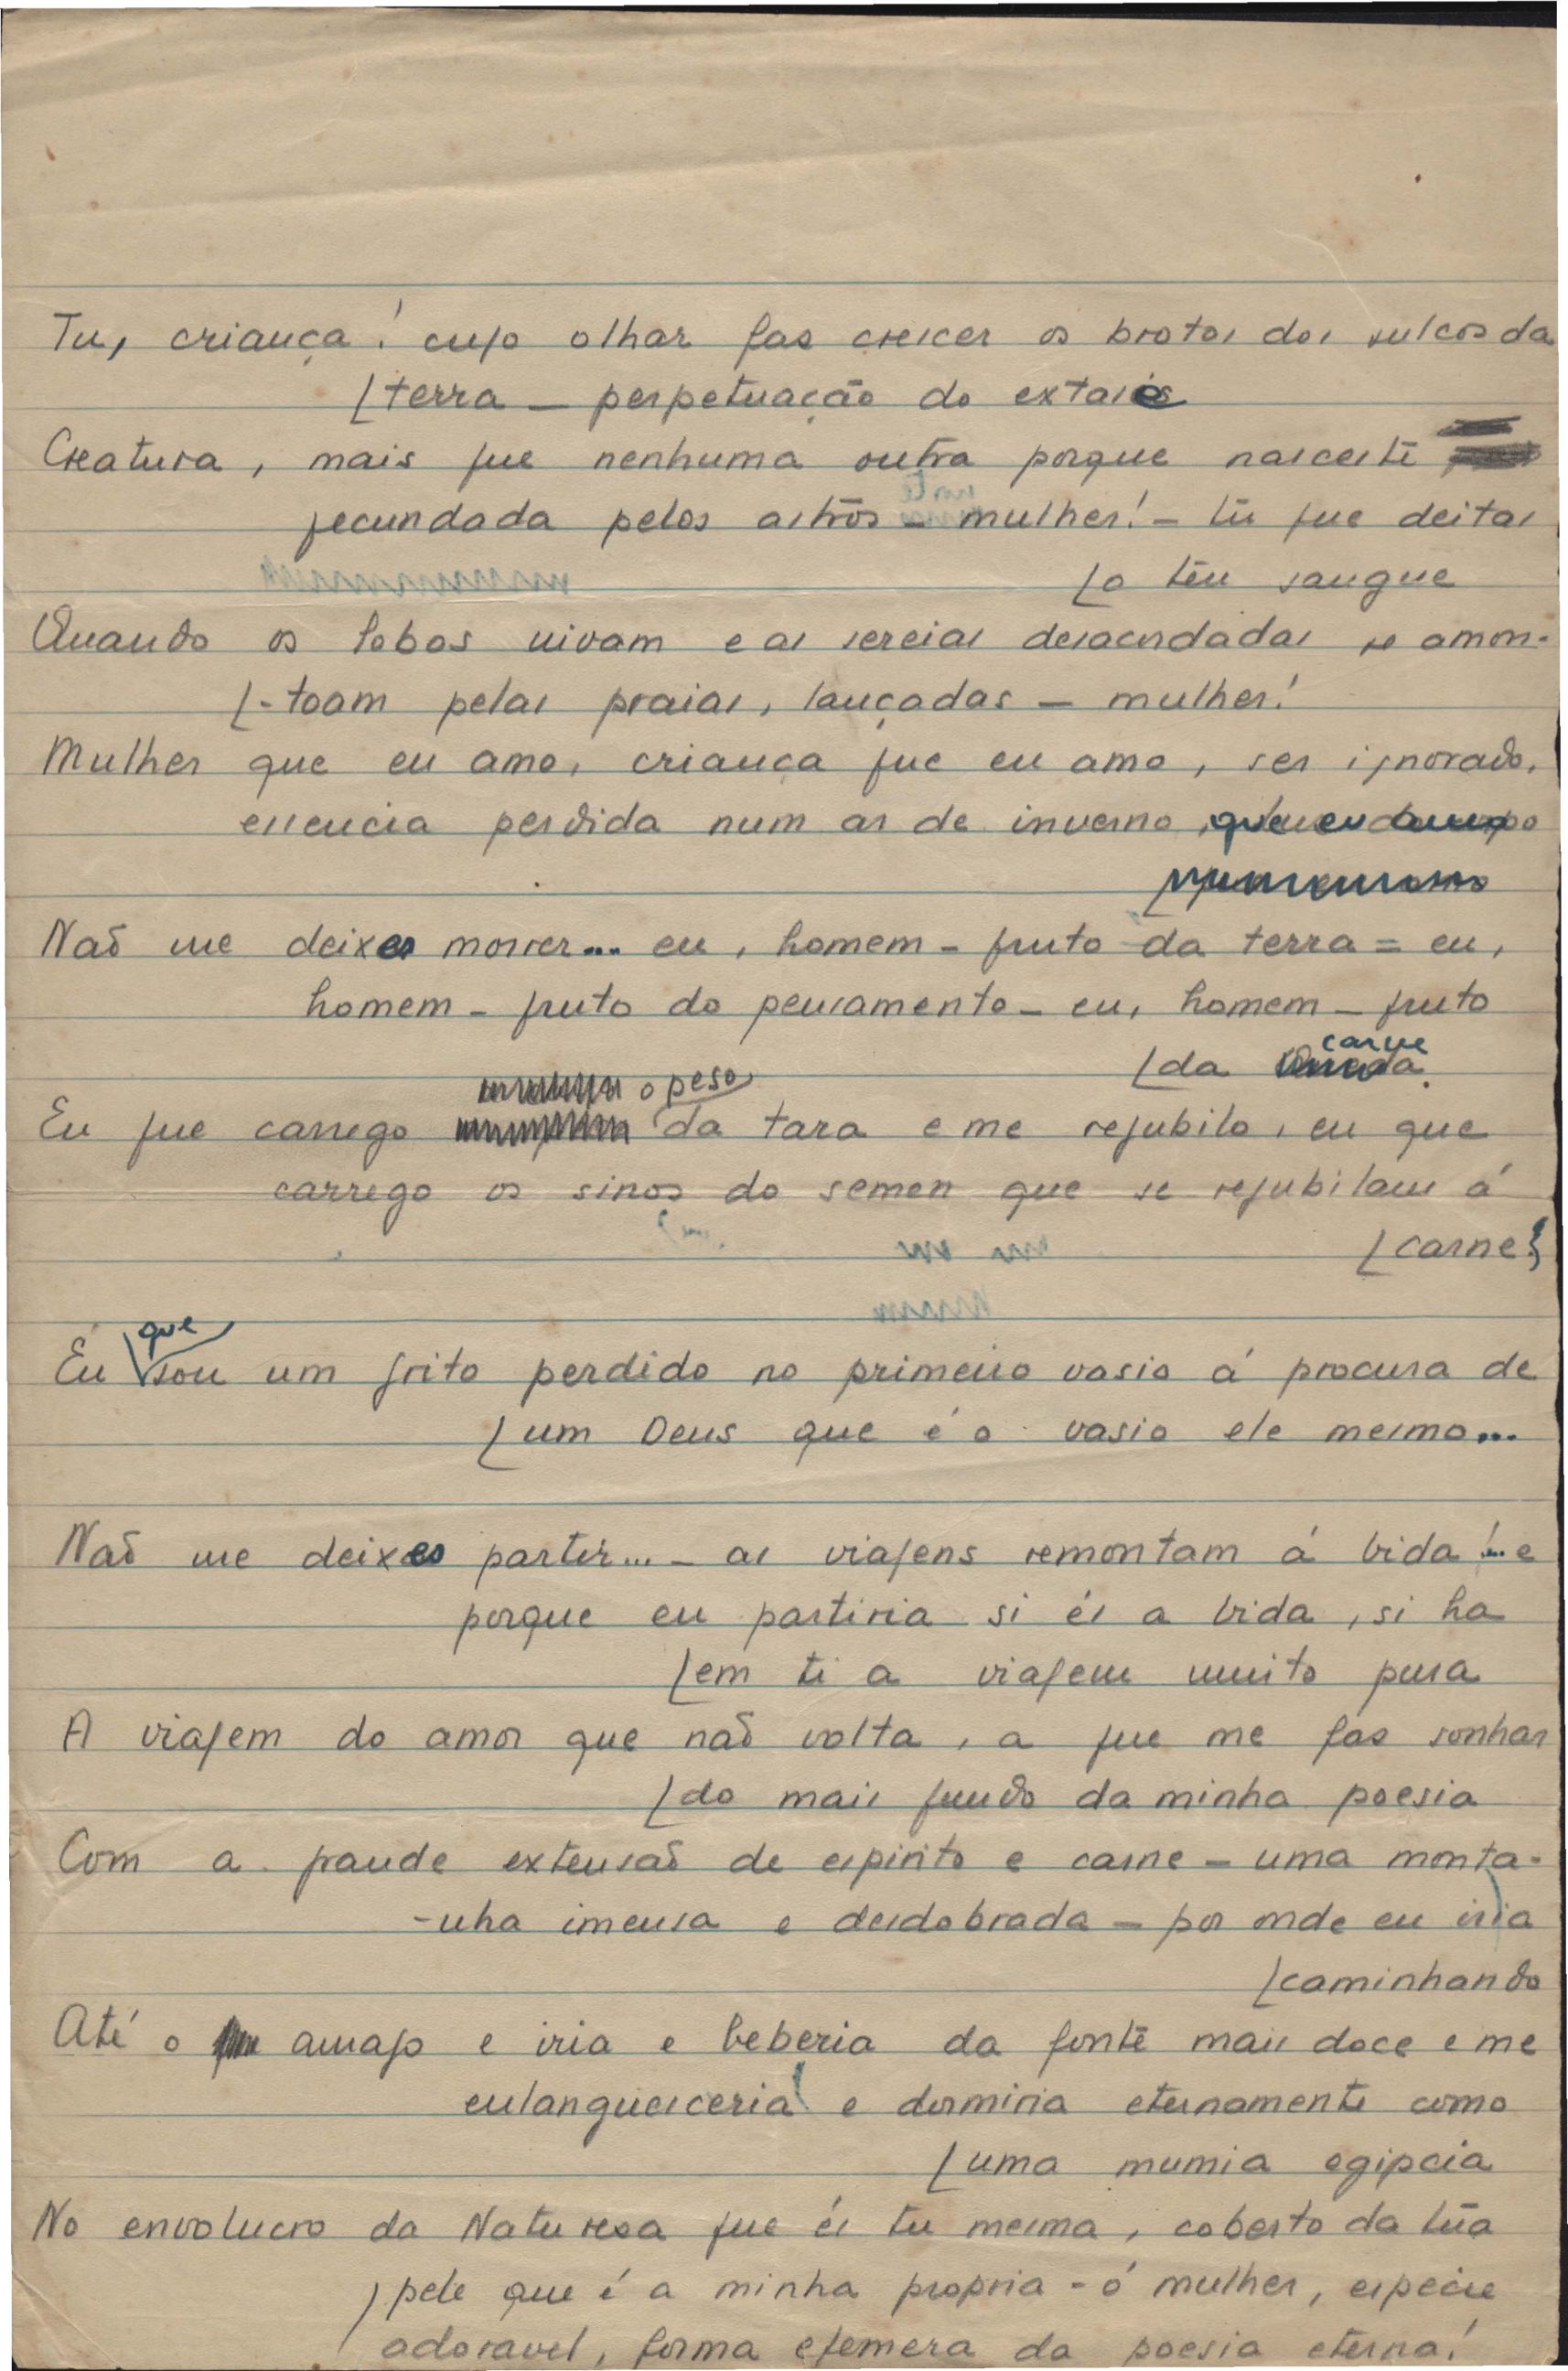 Tu, criança! cujo olhar faz crescer os brotos dos sulcos da
[terra — perpetuação do extases
Creatura, mais que nenhuma outra porque nasceste
fecundada pelos astros — mulher! — tu que deitas
[o teu sangue
Quando os lobos uivam e as sereias desacordadas se amon-
[-toam pelas praias, lançadas — mulher!
Mulher que eu amo, criança que eu amo, ser ignorado,
essencia perdida num ar de inverno,
Naõ me deixes morrer... eu, homem - fruto da terra = eu,
homem - fruto do pensamento - eu, homem - fruto
[da carne
Eu que carrego o peso da tara e me rejubilo, eu que
carrego os sinos do semen que se rejubilam á
[carne!
Eu que sou um grito perdido no primeiro vasio á procura de
[um Deus que é o vasio ele mesmo...
Naõ me deixes partir... - as viajens remontam á vida!... e
porque eu partiria si és a vida, si ha
[em ti a viajem muito pura
A viajem do amor que naõ volta, a que me faz sonhar
[do mais fundo da minha poesia
Com a grande extensaõ de espirito e carne - uma monta-
-nha imensa e desdobrada - por onde eu iria
[caminhando
Até o amago e iria e beberia da fonte mais doce e me
enlanguesceria e dormiria eternamente como
[uma mumia egipcia
No envolucro da Natureza que és tu mesma, coberto da tua
pele que é a minha propria - ó mulher, especie
adoravel, forma efemera da poesia eterna!